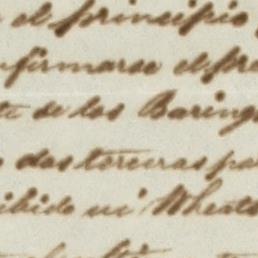 el principio
firmarse el pre
te de los Baring
dos terceras pa
ibido ni Wheat